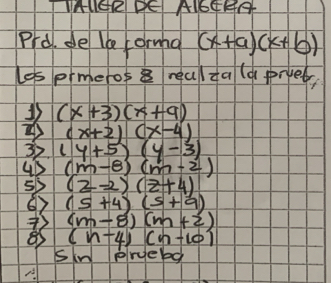 TALLER DE ALGEBRA
Prd. de la forma (x+a)(x+b)
Los prmeros 8 realza la prueb,
1> (x+3)(x+9)
2> (x+2) (x-4)
3> (y+5) (y-3)
4> (m-8) (m-2)
5> (z-2) (z+4)
6> (s+4) (s+9)
7> (m-8) (m+2)
8> (n-4) (n-10)
Sin prueba